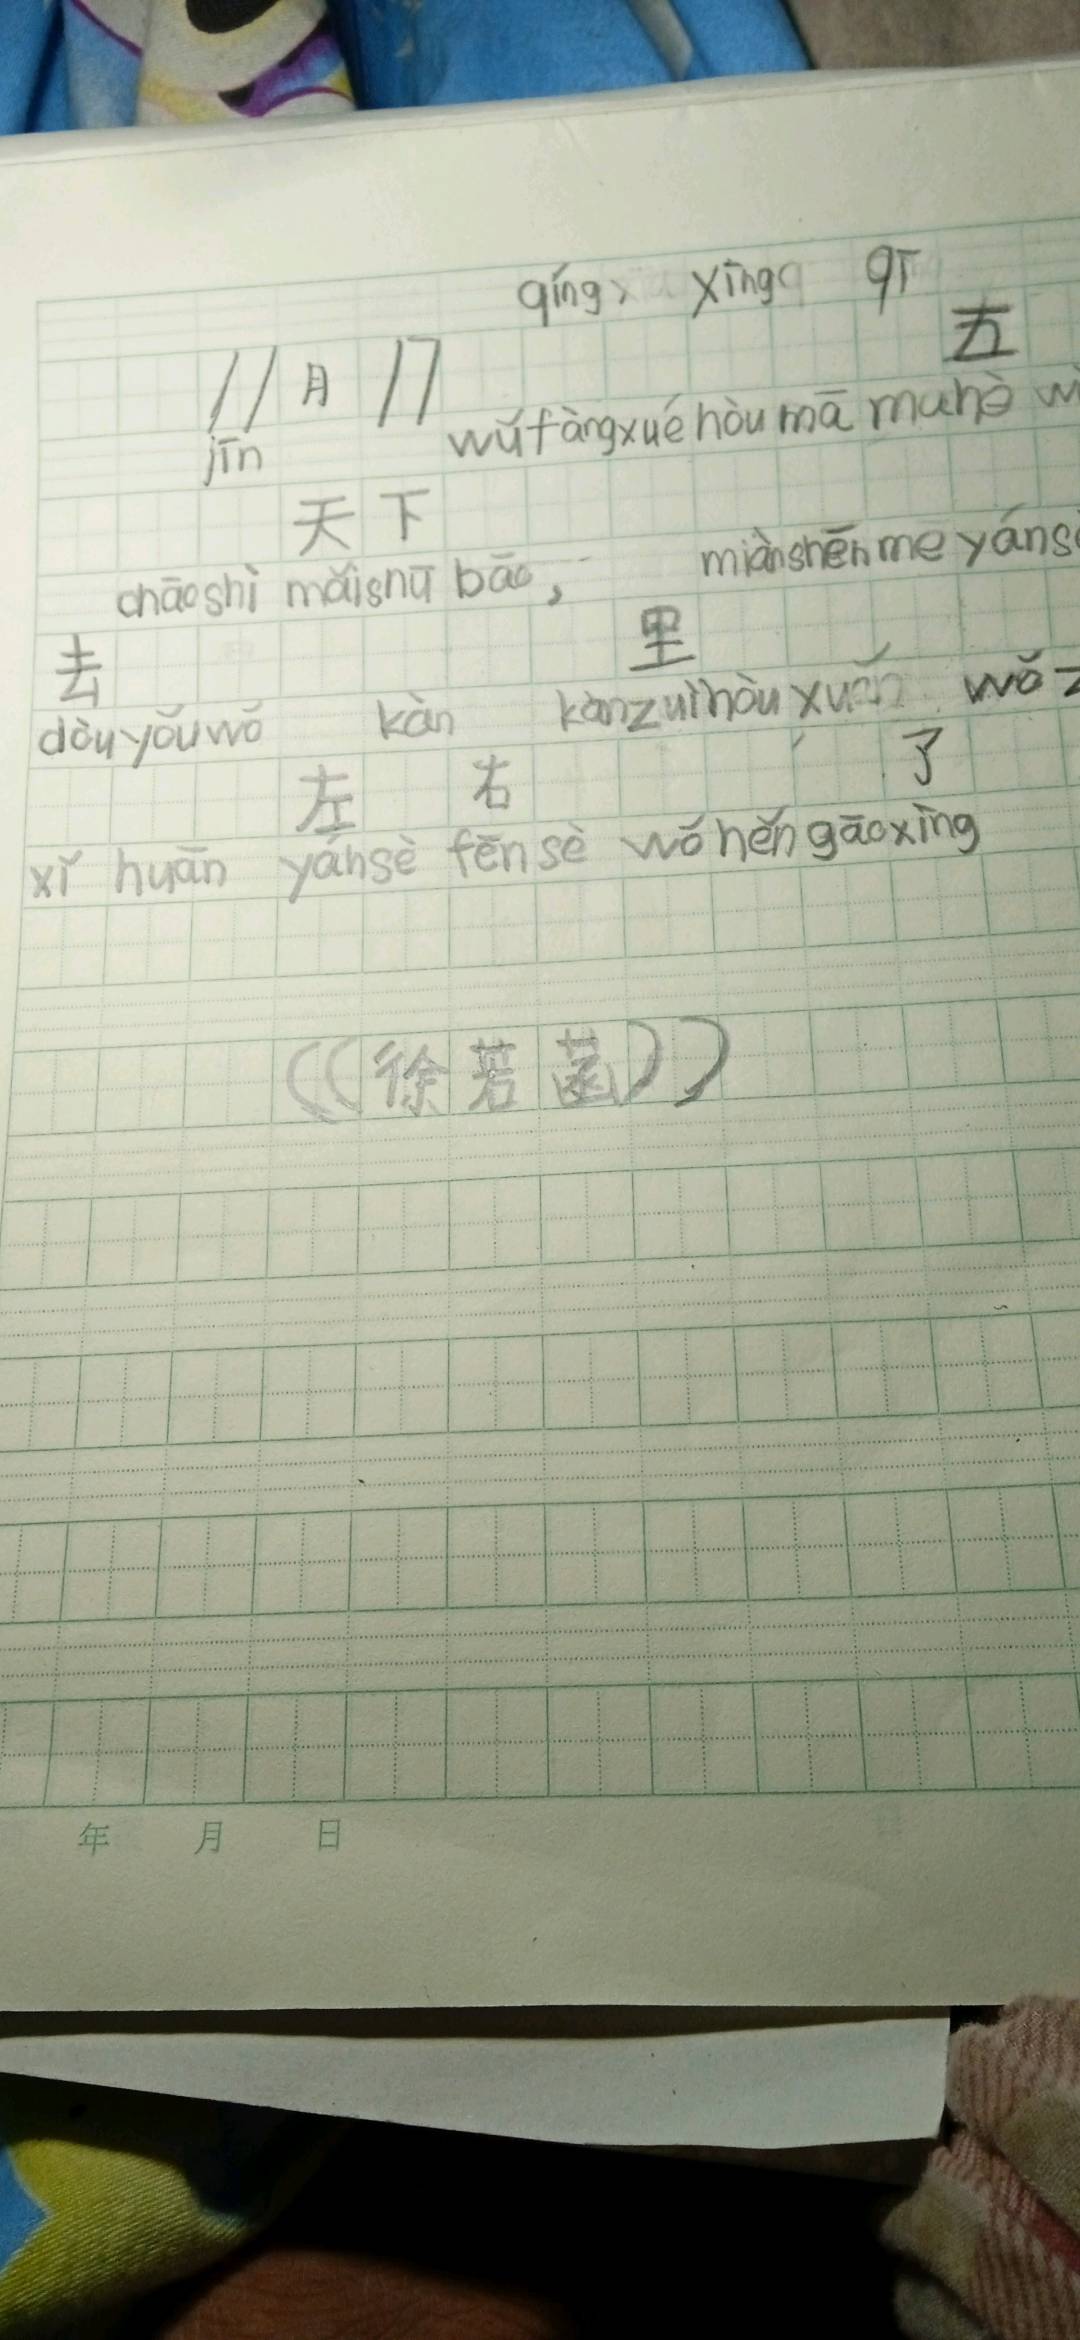 qíng xīng qī
11月17 五
jīn wǔfàngxuéhòumā mahè
天下
chāoshì mǎishū bāo, miànshénmeyánsè
去 里
dòuyǒuwǒ kàn kànzuìhòuxuǎn wǒz
左右 了
xǐ huān yánsè fěnsè wǒhěngāoxìng
((徐若菡))
年 月 日